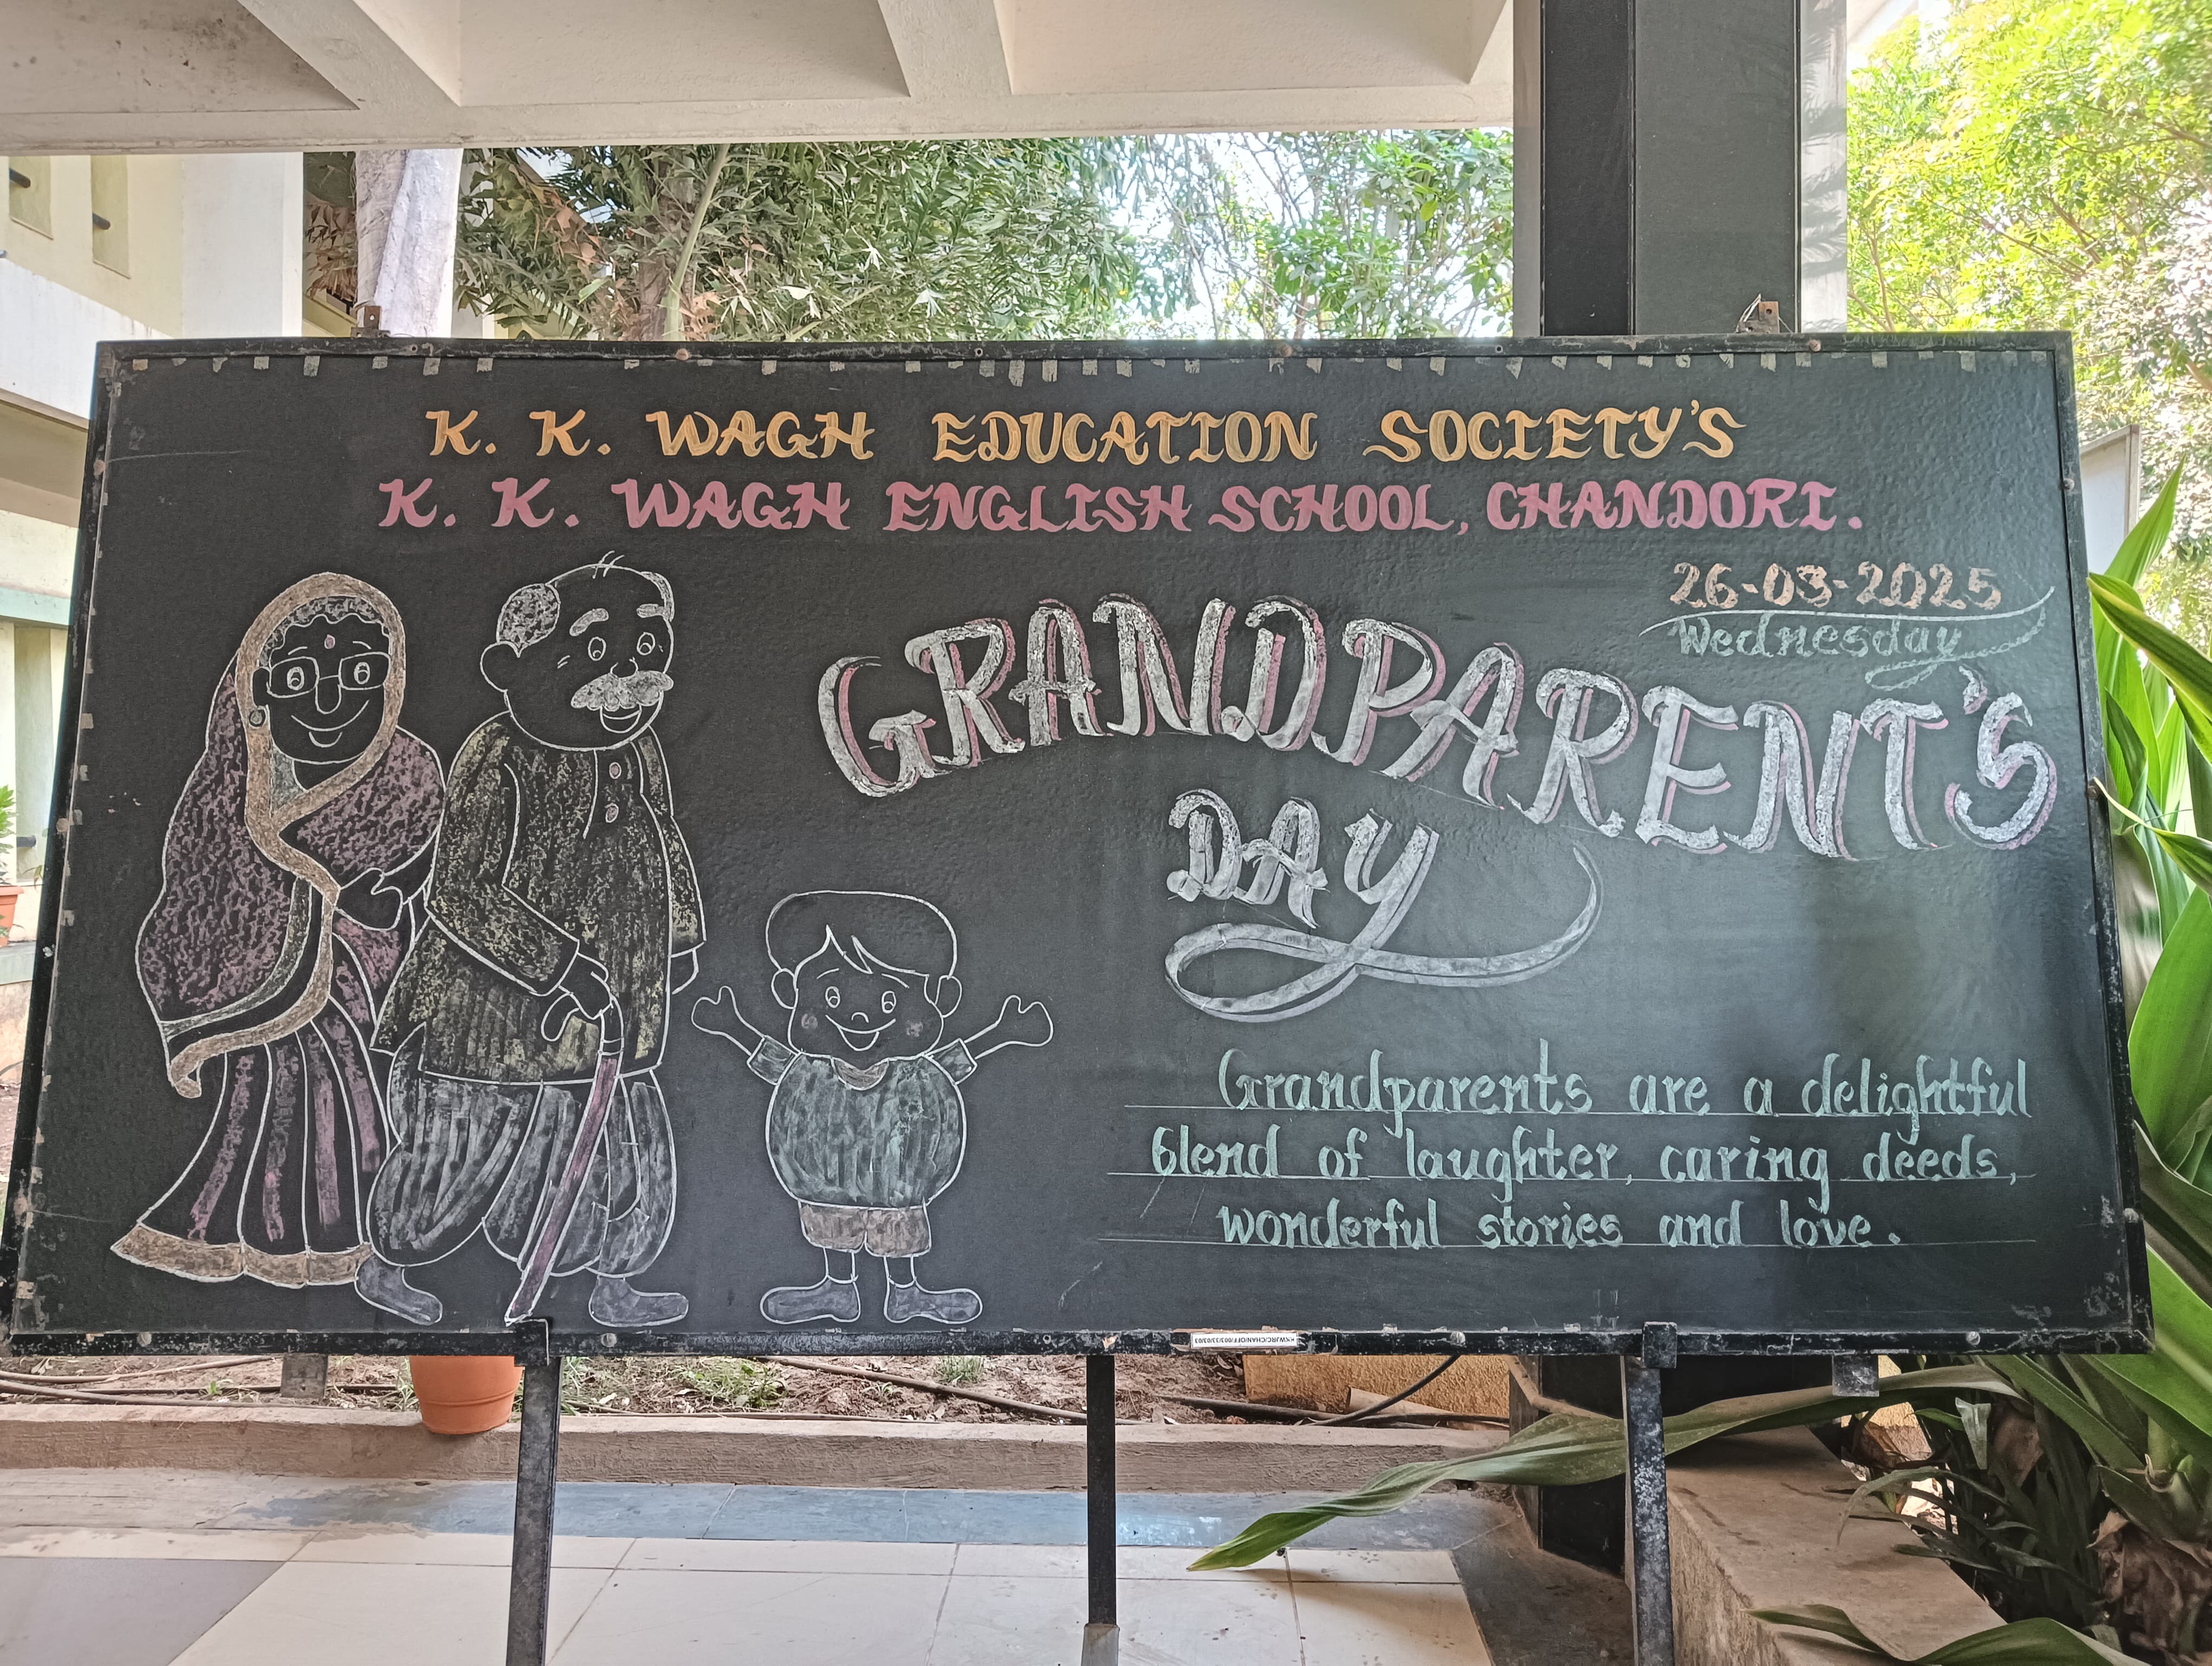 K. K. WAGH EDUCATION SOCIETY'S
K. K. WAGH ENGLISH SCHOOL, CHANDORI.
26-03-2025
Wednesday
GRANDPARENT'S
DAY
Grandparents are a delightful
blend of laughter, caring deeds,
wonderful stories and love.